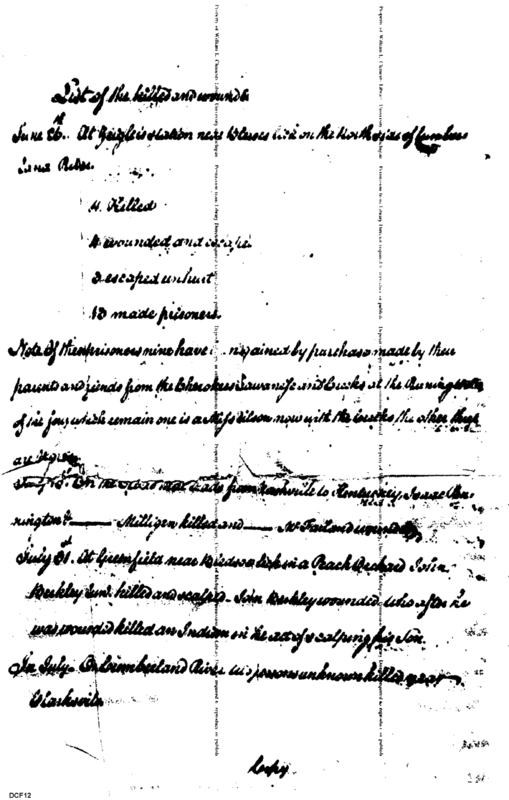 List of the killed and wounded
June 26th. At Zeigler's station near Bledsoes lick on the North side of Cumber
land River.
4. Killed
4 wounded and escape
3 escaped unhurt
13 made prisoners
Note Of these prisoners nine have regained by purchase made by their
parents and friends from the Cherokees Sawanese and Creeks at the Running water
of the four which remain one is a Miss Wilson now with the Creeks the other three
are
July On the road that leads from Nashville to Kentuckey, Isaac Pen-
nington & —— Milligen killed and —— McFarland wounded
July 31st. At Greenfield near Bledsoe lick in a Peach Orchard John
Berkley Junr. killed and scalped - John Berkley wounded who after he
was wounded killed an Indian in the act of scalping his Son.
In July. On Cumberland River two persons unknown killed near
Clarksville
Copy
DCF12